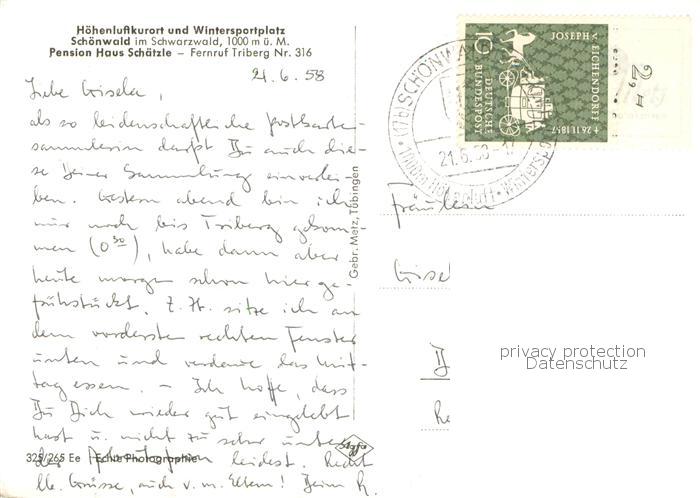 Höhenluftkurort und Wintersportplatz
Schönwald im Schwarzwald, 1000 m ü. M.
Pension Haus Schätzle – Fernruf Triberg Nr. 316
21.6.58
Liebe Gisela,
als so leidenschaftliche Postkarten-
sammlerin darfst Du auch die-
se Deiner Sammlung einverlei-
ben. Gestern abend bin ich
nur noch bis Triberg gekom-
men (0³⁰), habe dann aber
heute morgen schon hier ge-
frühstückt. Z. Zt. sitze ich an
dem vordersten rechten Fenster
unten und verdaue das Mit-
tagessen. – Ich hoffe, dass
Du Dich wieder gut eingelebt
hast u. nicht zu sehr unter
leidest. Recht
lb. Grüsse, auch v. m. Eltern! Dein R.
325/265 Ee Echte Photographie
Agfa
Gebr. Metz, Tübingen
10
DEUTSCHE
BUNDESPOST
JOSEPH
v. EICHENDORFF
+ 26.11.1857
(TRIBERG) SCHÖNWALD
21.6.58-17
Höhenluft- Wintersp
Fräulein
Gisel
privacy protection
Datenschutz